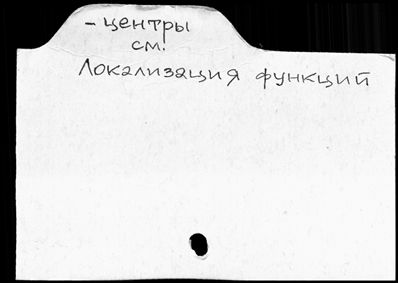 - центры
см.
Локализация функций